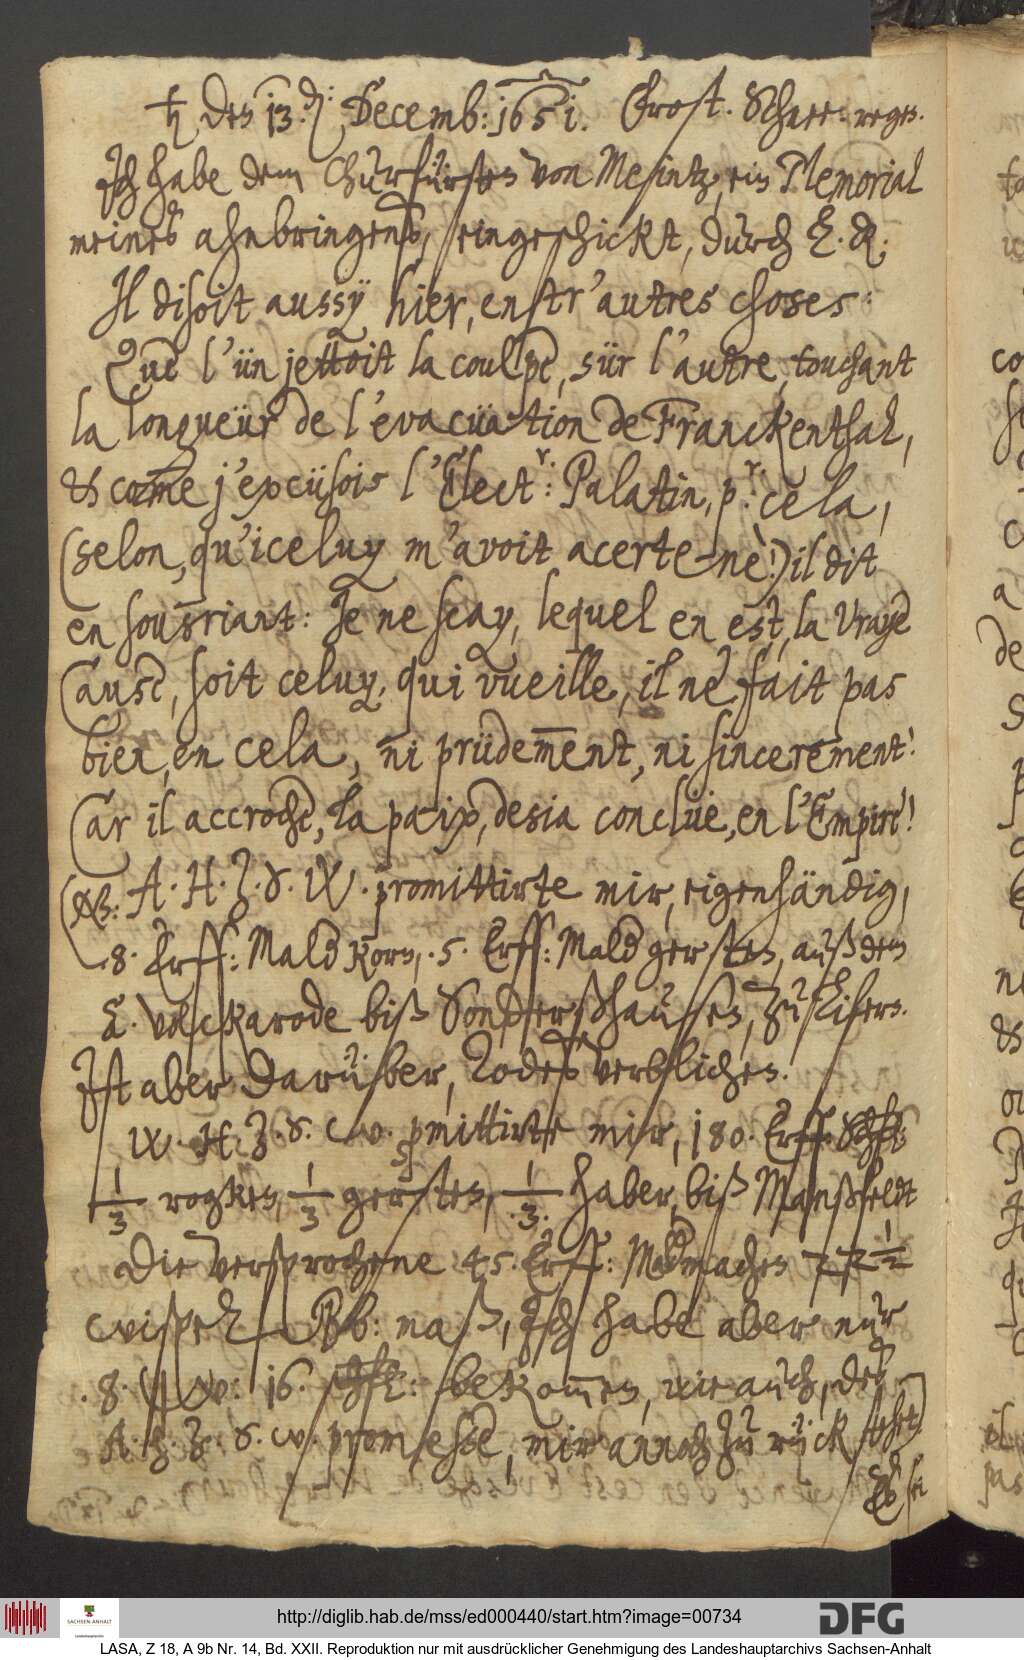 ♄ den 13.den: Decemb: 1651. Frost. Schnee: regen.
Ich habe dem Churfürsten von Meintz, ein Memorial
meines ahnbringens, eingeschickt, durch E. R;
Il disoit aussÿ hier, enstr'autres choses:
Que l'ün jettoit la coulpe, sür l'autre, touchant
la longueür de l'evacüation de Franckenthal,
& come j'excüsois l'Elect.r: Palatin, p.r: cela,
(selon, qu'iceluy m'avoit acerte-nè!) il dit
en sousriant: Je ne scay, lequel en est, la vraye
Cause, soit celuy, qui vueille, il ne fait pas
bien, en cela, ni prüdemment, ni sincerement!
Car il accroche, la paix, desia conclüe, en l'Empire!
(NB: A. H. Z. S. W. promittirte mir, eigenhändig,
8. Erff: Mald Korn, 5. Erff: Mald gersten, auß den
E. Vockarode biß Sondersßhausen, zu lifern.
Ist aber darüber, Todes verblichen.
W. H. Z. S. W. pmittirte mir, 180. Erff. Schfl:
1/3 rogken, 1/3 gersten, 1/3. haber, biß Manßfeldt
Die versprochene 45. Erff: Mald machen 7 1/2
wispel Bb: maß, Ich habe aber nur
8. W: 16. schfl: bekommen, wie auch, des
A. H. Z. S. W. promesse, mir annoch zu rück stehet)
Es sei
http://diglib.hab.de/mss/ed000440/start.htm?image=00734
DFG
SACHSEN-ANHALT
Landeshauptarchiv
LASA, Z 18, A 9b Nr. 14, Bd. XXII. Reproduktion nur mit ausdrücklicher Genehmigung des Landeshauptarchivs Sachsen-Anhalt